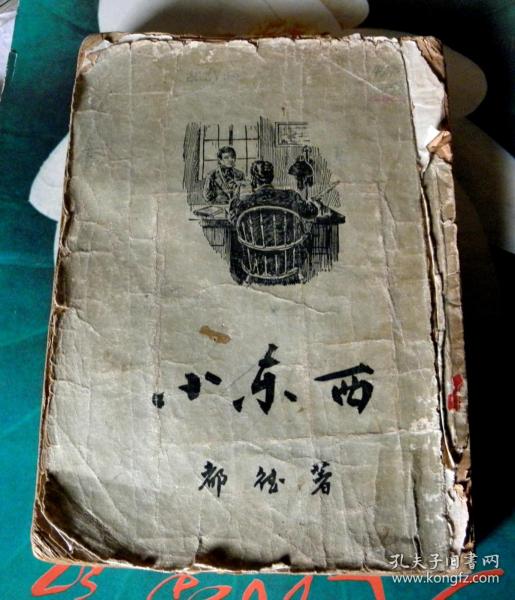 小东西
都德著
孔夫子旧书网
www.kongfz.com